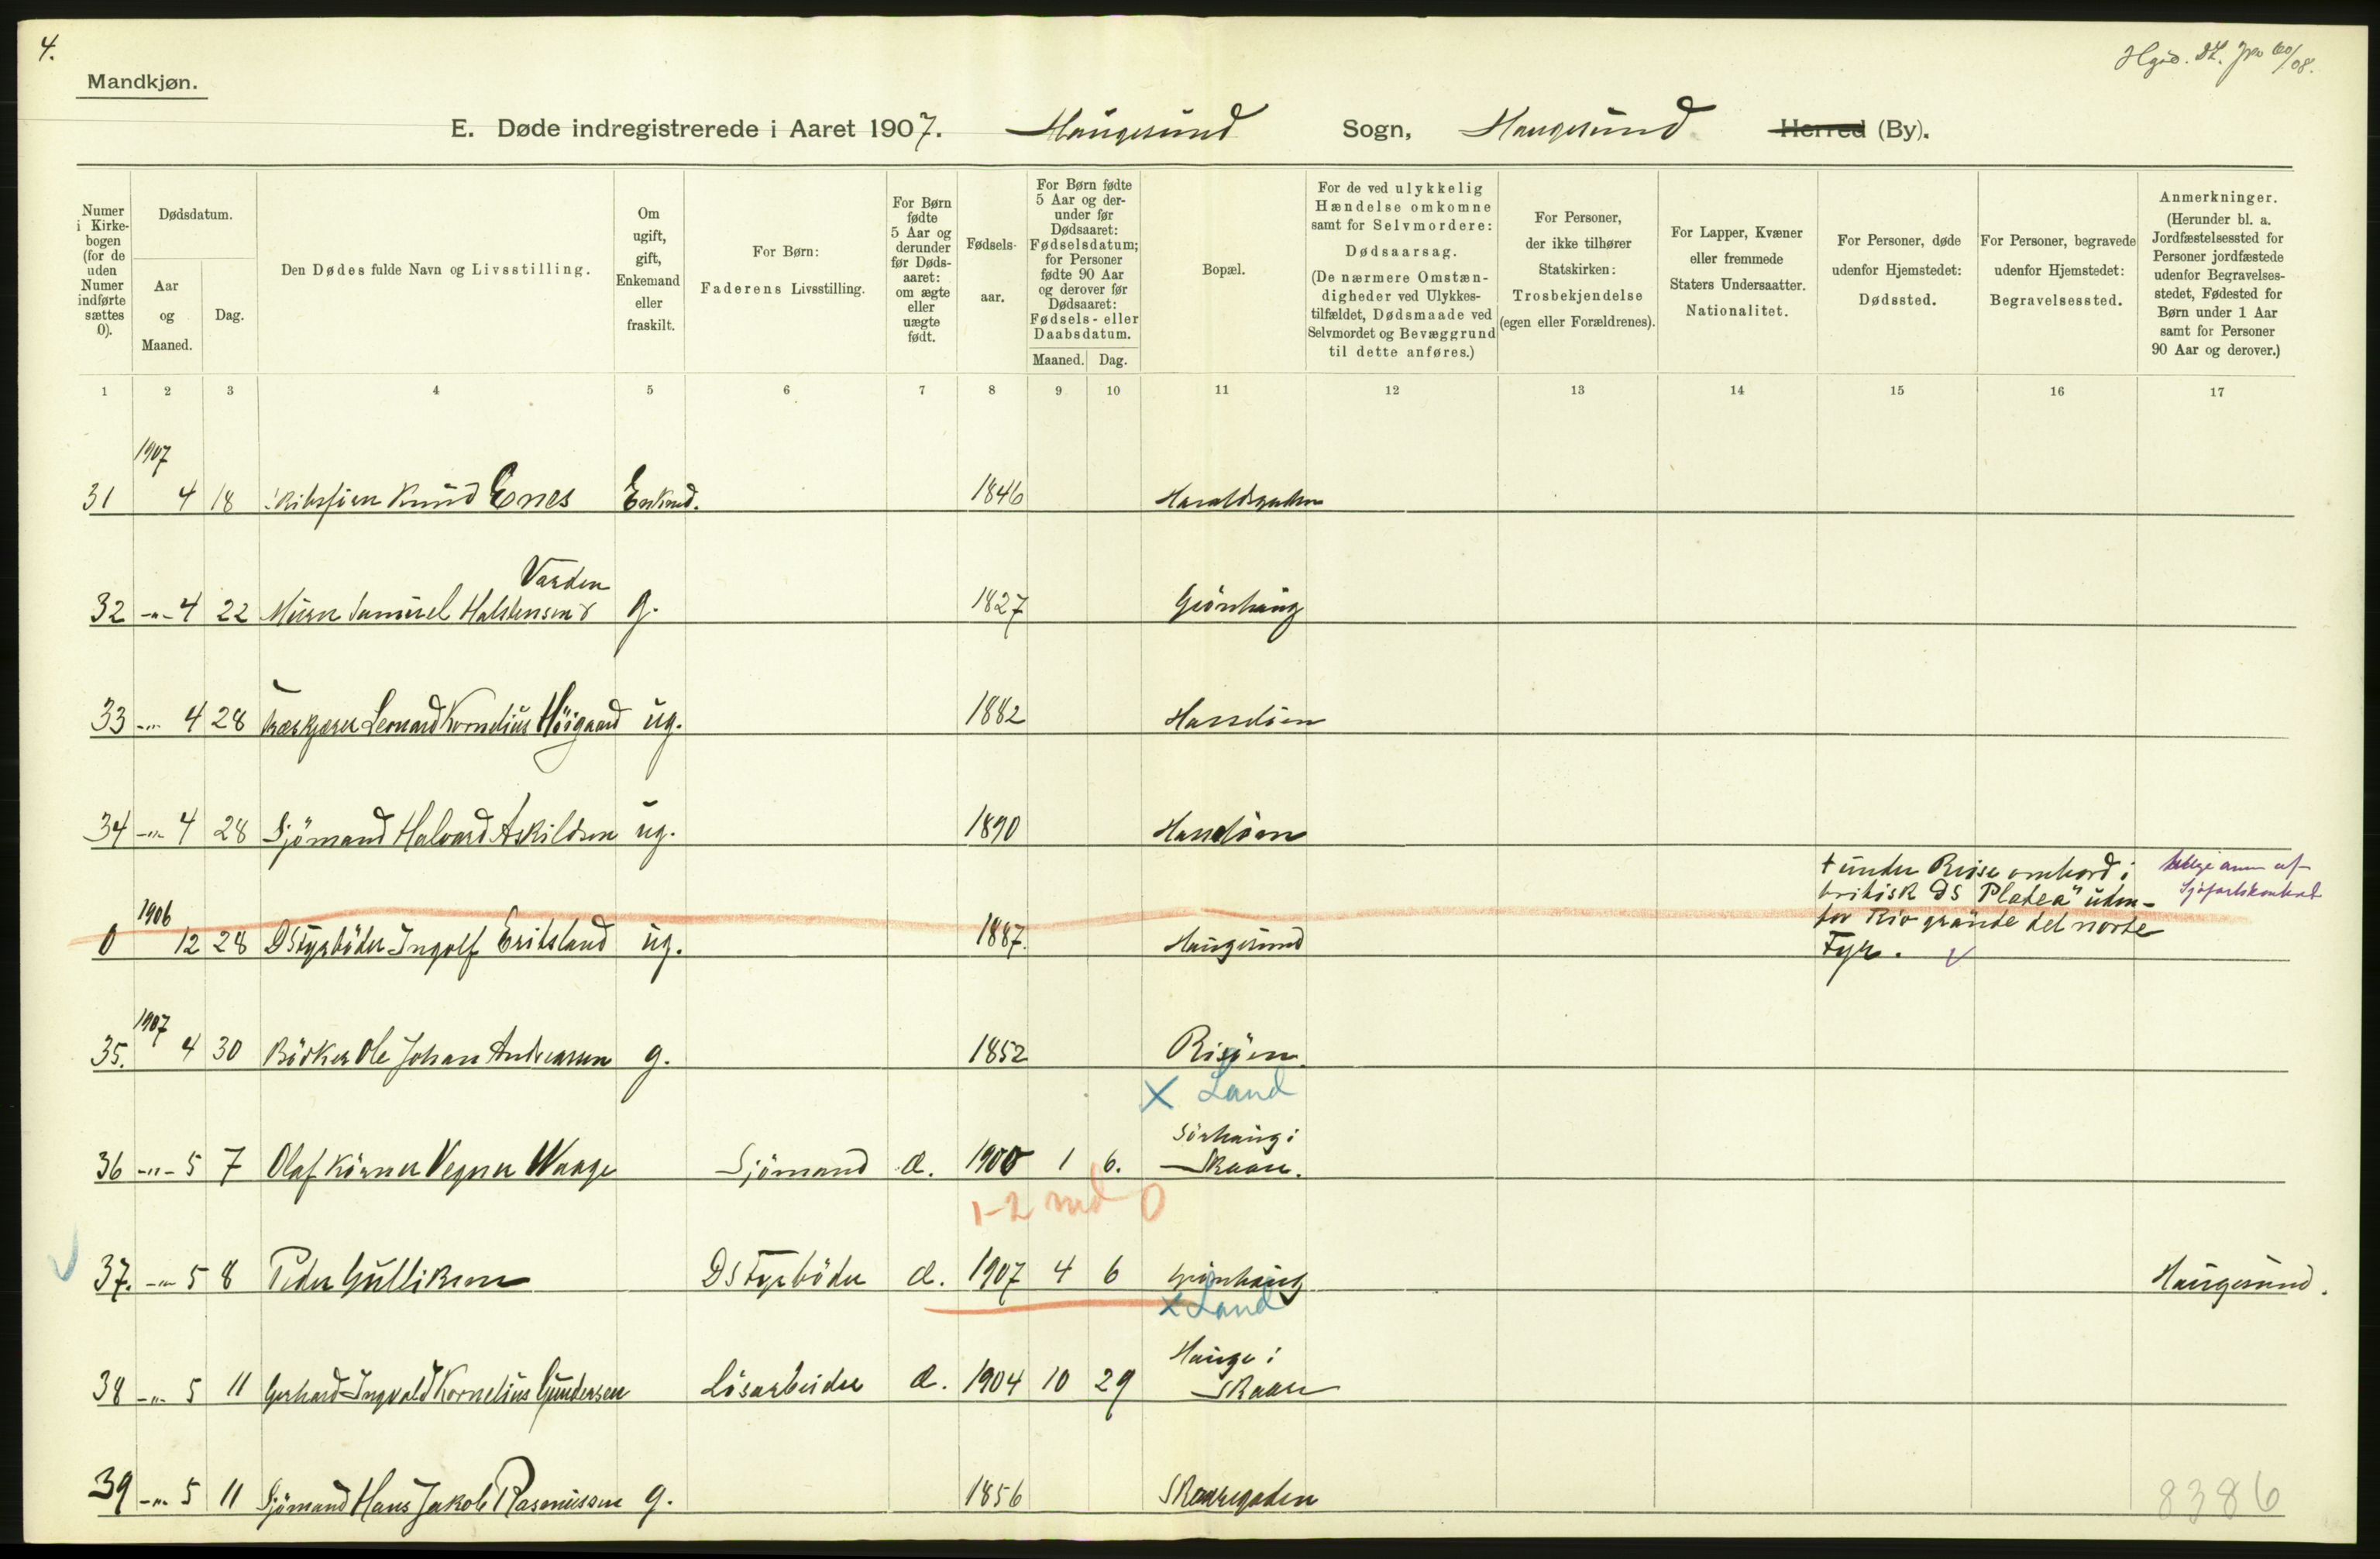 4.
Mandkjøn.
E. Døde indregistrerede i Aaret 1907. Haugesund Sogn, Haugesund Herred (By).
Numer i Kirke-bogen (for de uden Numer indførte sættes 0).
Dødsdatum.
Aar og Maaned.
Dag.
Den Dødes fulde Navn og Livsstilling.
Om ugift, gift, Enkemand eller fraskilt.
For Børn:
Faderens Livsstilling.
For Børn fødte 5 Aar og derunder før Døds-aaret: om ægte eller uægte født.
Fødsels-aar.
For Børn fødte 5 Aar og der-under før Dødsaaret: Fødselsdatum; for Personer fødte 90 Aar og derover før Dødsaaret: Fødsels- eller Daabsdatum.
Maaned. Dag.
Bopæl.
For de ved ulykkelig Hændelse omkomne samt for Selvmordere:
Dødsaarsag.
(De nærmere Omstæn-digheder ved Ulykkes-tilfældet, Dødsmaade ved Selvmordet og Bevæggrund til dette anføres.)
For Personer, der ikke tilhører Statskirken:
Trosbekjendelse
(egen eller Forældrenes).
For Lapper, Kvæner eller fremmede Staters Undersaatter.
Nationalitet.
For Personer, døde udenfor Hjemstedet:
Dødssted.
For Personer, begravede udenfor Hjemstedet:
Begravelsessted.
Anmerkninger.
(Herunder bl. a. Jordfæstelsessted for Personer jordfæstede udenfor Begravelses-stedet, Fødested for Børn under 1 Aar samt for Personer 90 Aar og derover.)
1 2 3 4 5 6 7 8 9 10 11 12 13 14 15 16 17
1907
31 4 18 Knud Enes Enkmd. 1846 Haraldsgaden
Varden
32 -"- 4 22 Murer Samuel Halstensen g. 1827 Grönhaug
33 -"- 4 28 Leonard Kornelius Höigaard ug. 1882 Hasselöen
34 -"- 4 28 Sjömand Halvard Askildsen ug. 1890 Hasselöen
1906
0 12 28 DSfyrböder Ingolf Eritsland ug. 1887. Haugesund
† under Reise ombord i
britisk DS "Platea" uden-
for Rio grande del norte
Fyr.
Sjöfartskontoret
1907
35. 4 30 Bödker Ole Johan Andreassen g. 1852 Risöen.
x Land
Sörhaug i
36 -"- 5 7 Olaf Körner Vegner Waage Sjömand æ. 1900 1 6. Skaare.
1-2 md 0
37. -"- 5 8 Peder Gulliksen DSfyrböder æ. 1907 4 6 Grönhaug Haugesund.
x Land
Hauge i
38 -"- 5 11 Gerhard Ingvald Kornelius Gundersen Lösarbeider æ. 1904 10 29 Skaare
39 -"- 5 11 Sjömand Hans Jakob Rasmussen g. 1856 Skaaregaden
8386